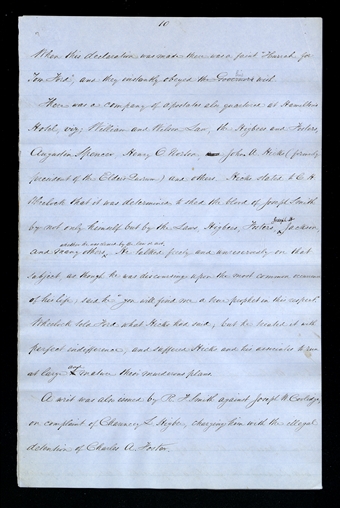 10
When this declaration was made there was a faint "Hurrah for
Tom Ford", and they instantly obeyed the Governors will.
There was a company of apostates also quartered at Hamiltons
Hotel, viz; William and Wilson Law, the Higbees and Fosters,
Augustin Spencer, Henry O Norton, John A. Hicks (formerly
president of the Elders Quorum) and others. Hicks stated to C. H.
Wheelock that it was determined to shed the blood of Joseph Smith
by not only himself but by the Laws, Higbees, Fosters, Joseph H. Jackson,
and many others, whether he was cleared by the law or not.
He talked freely and unreservedly on that
subject, as though he was discoursing upon the most common occurrence
of his life; said he "you will find me a true prophet in this respect."
Wheelock told Ford what Hicks had said; but he treated it with
perfect indifference; and suffered Hicks and his associates to run
at large and mature their murderous plans.
A writ was also issued by R. F. Smith against Joseph W. Coolidge,
on complaint of Chauncey L. Higbee, charging him with the illegal
detention of Charles A. Foster.